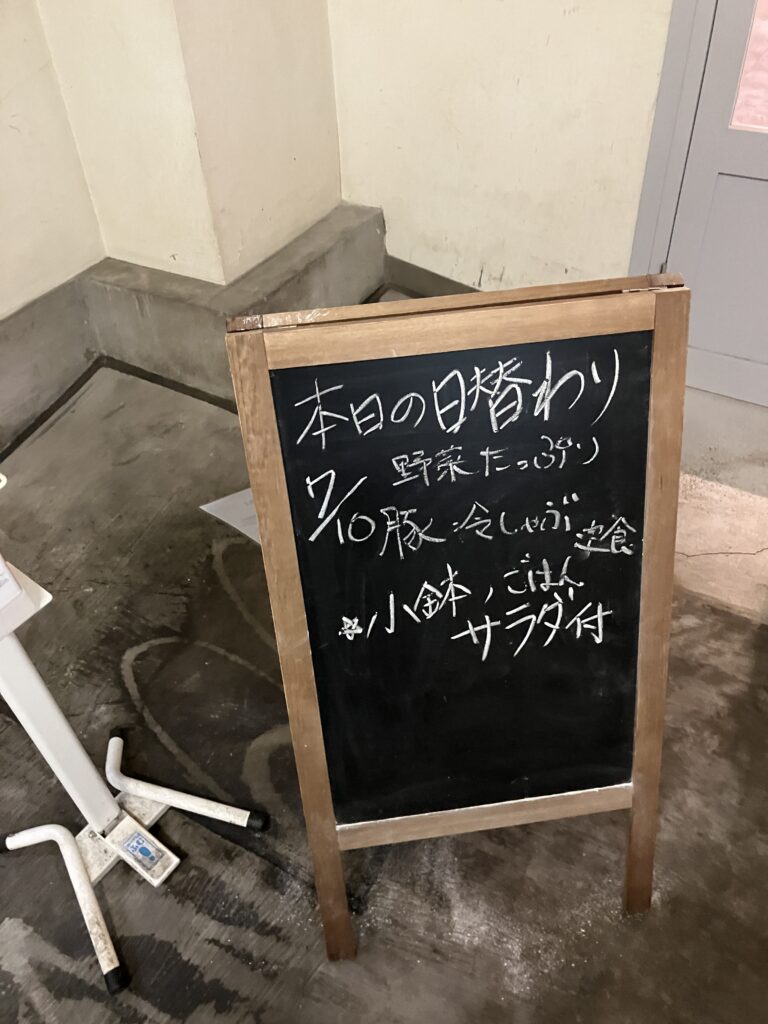 本日の日替わり
7/10 野菜たっぷり
豚冷しゃぶ定食
※小鉢、ごはん
サラダ付